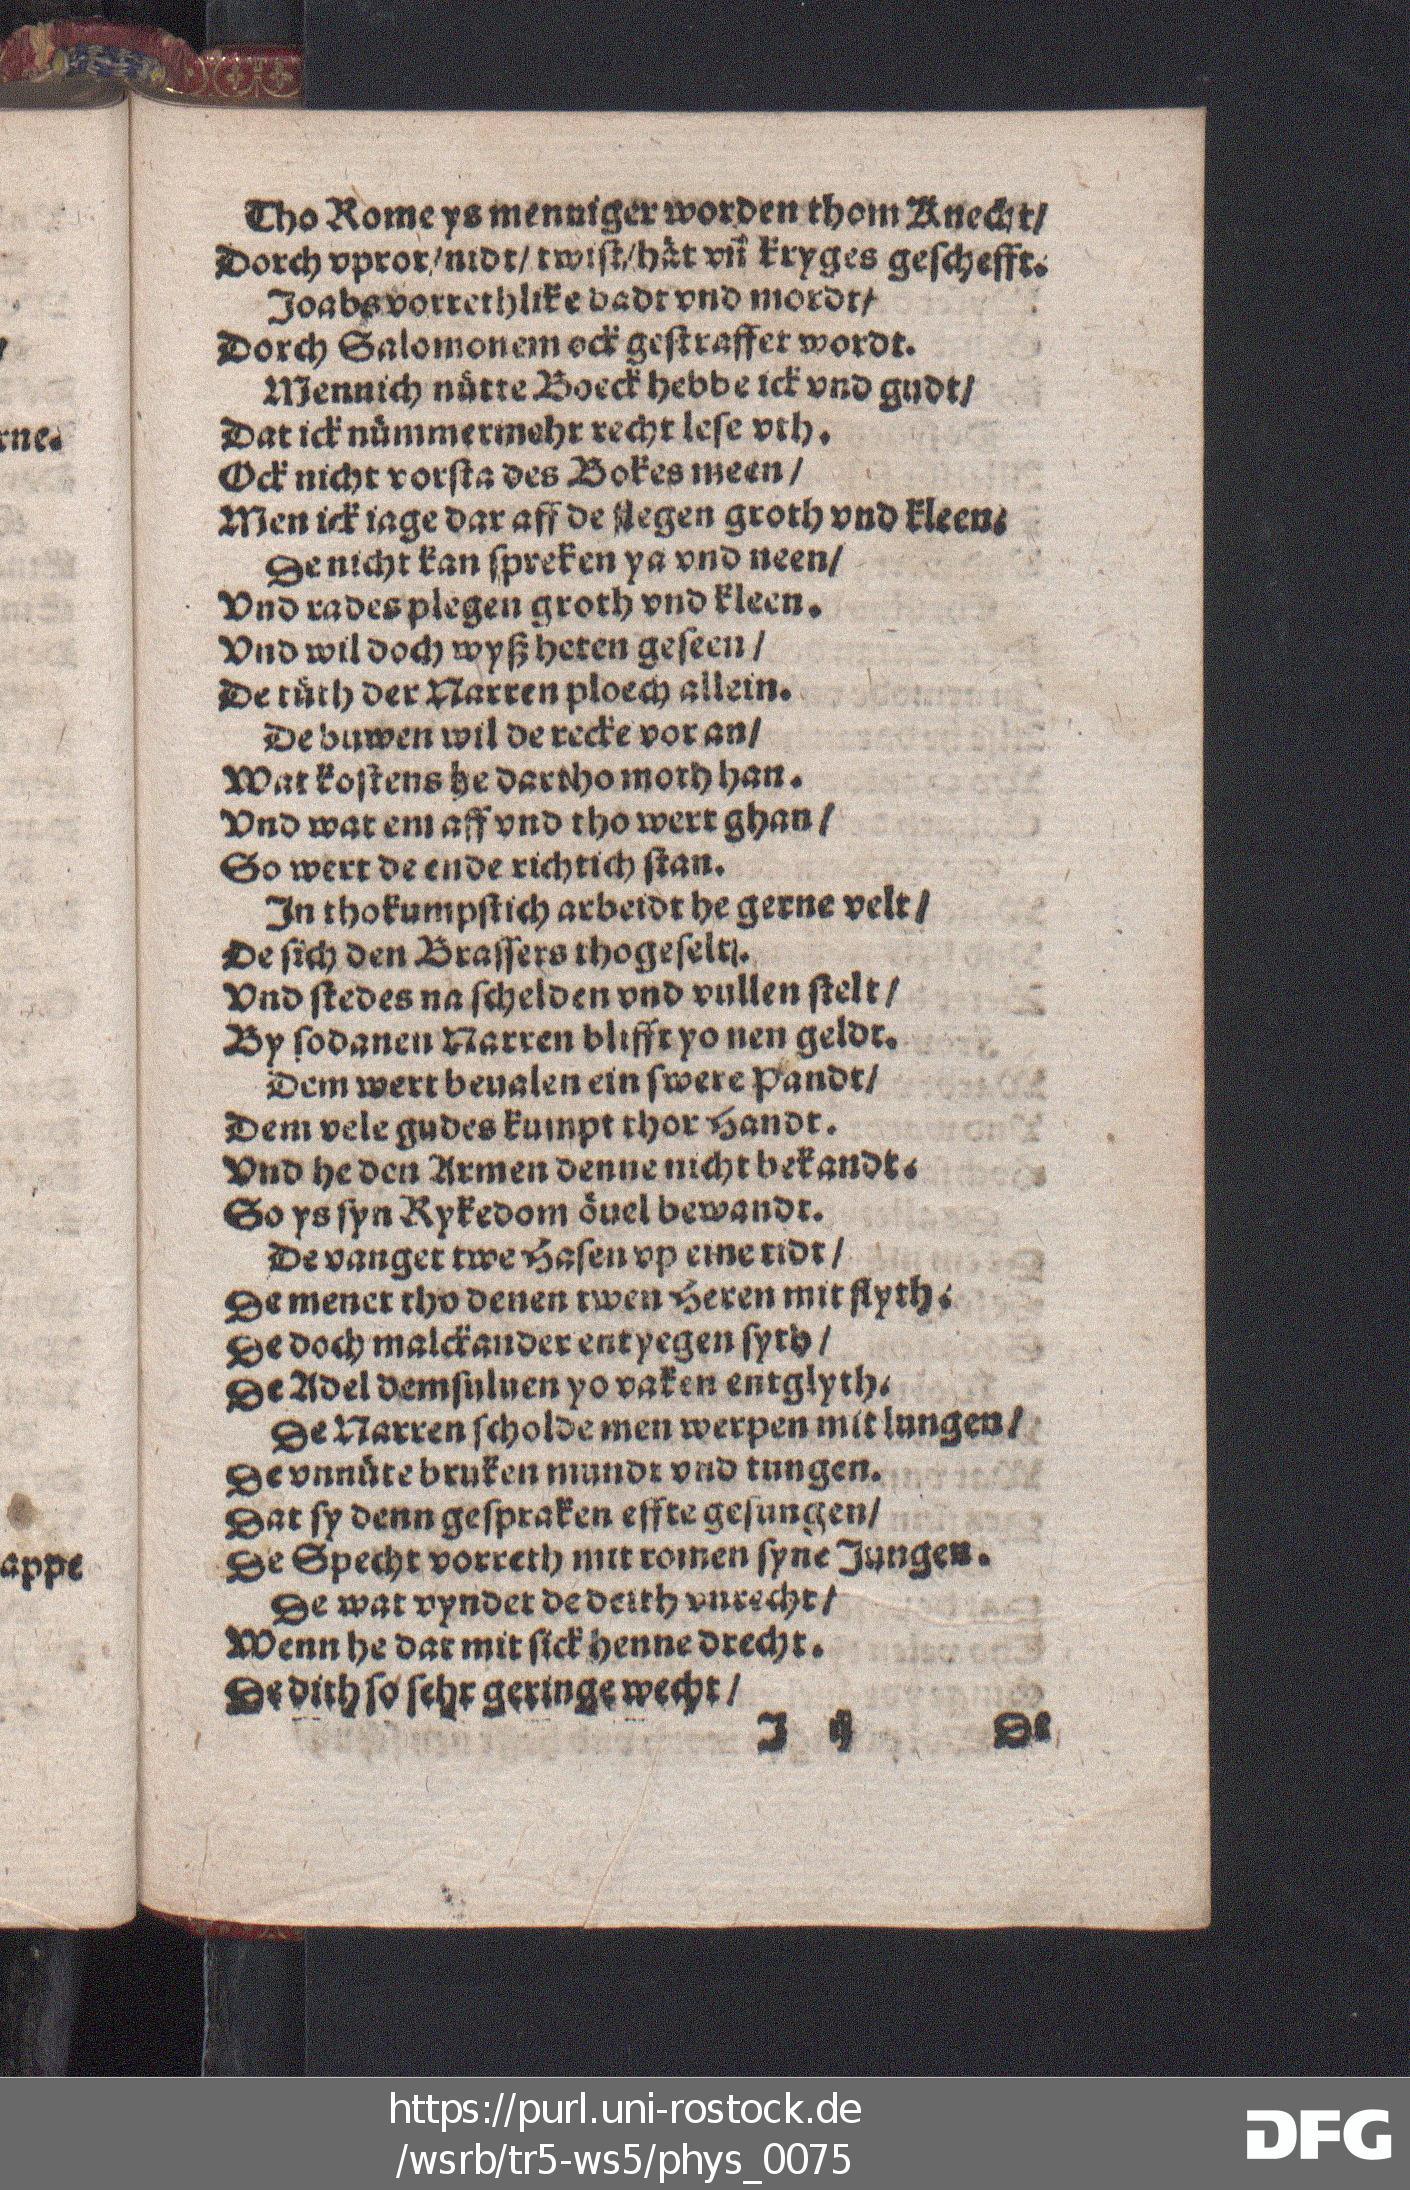 Tho Rome ys menniger worden thom Knecht/
Dorch vpror/nidt/twist/håt vñ kryges geschefft.
Joabs vorrethlike dadt vnd mordt/
Dorch Salomonem ock gestraffet wordt.
Mennich nütte Boeck hebbe ick vnd gudt/
Dat ick nümmermehr recht lese vth.
Ock nicht vorsta des Bokes meen/
Men ick iage dar aff de flegen groth vnd kleen.
De nicht kan spreken ya vnd neen/
Vnd rades plegen groth vnd kleen.
Vnd wil doch wyß heten geseen/
De tüth der Narren ploech allein.
De buwen wil de recke vor an/
Wat kostens he dartho moth han.
Vnd wat em aff vnd tho wert ghan/
So wert de ende richtich stan.
In thokumpstich arbeidt he gerne velt/
De sich den Brassers thogeselt.
Vnd stedes na schelden vnd vullen stelt/
By sodanen Narren blifft yo nen geldt.
Dem wert beualen ein swere Pandt/
Dem vele gudes kumpt thor Handt.
Vnd he den Armen denne nicht bekandt.
So ys syn Rykedom öuel bewandt.
De vanget twe Hasen vp eine tidt/
De menet tho denen twen Heren mit flyth.
De doch malckander entyegen syth/
De Adel demsuluen yo vaken entglyth.
De Narren scholde men werpen mit lungen/
De vnnüte bruken mundt vnd tungen.
Dat sy denn gespraken effte gesungen/
De Specht vorreth mit romen syne Jungen.
De wat vyndet de deith vnrecht/
Wenn he dat mit sick henne drecht.
De dith so sehr geringe wecht/
J ij De
rne.
appe
https://purl.uni-rostock.de
/wsrb/tr5-ws5/phys_0075
DFG